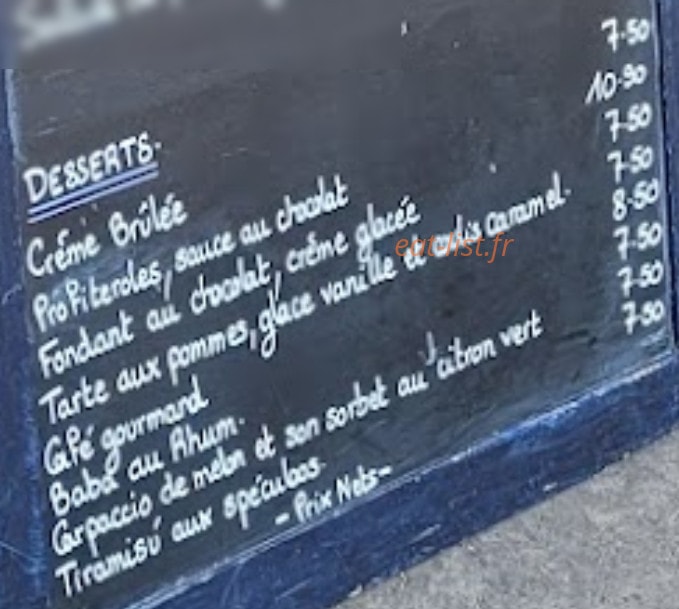 DESSERTS.
Crème Brûlée 7.50
Profiteroles, sauce au chocolat 10.90
Fondant au chocolat, crème glacée 7.50
Tarte aux pommes, glace vanille et coulis caramel. 7.50
Café gourmand 8.50
Baba au Rhum. 7.50
Carpaccio de melon et son sorbet au citron vert 7.50
Tiramisu aux spéculos. 7.50
- Prix Nets -
eat-list.fr